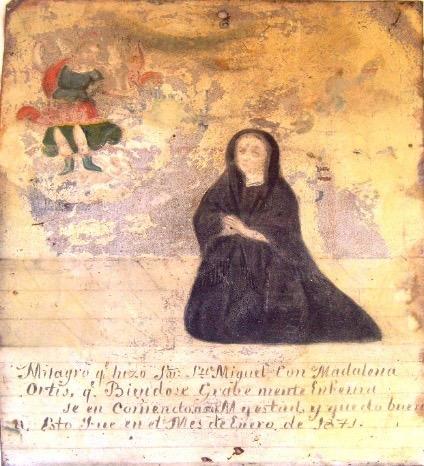 Milagro q. hizo Sor. Sn. Miguel Con Madalena
Ortis, q. Biendose Grabe mente Enferma
se en Comendo M y estad, y quedo buen
a. Esto Fue en el Mes de Enero, de 1871.